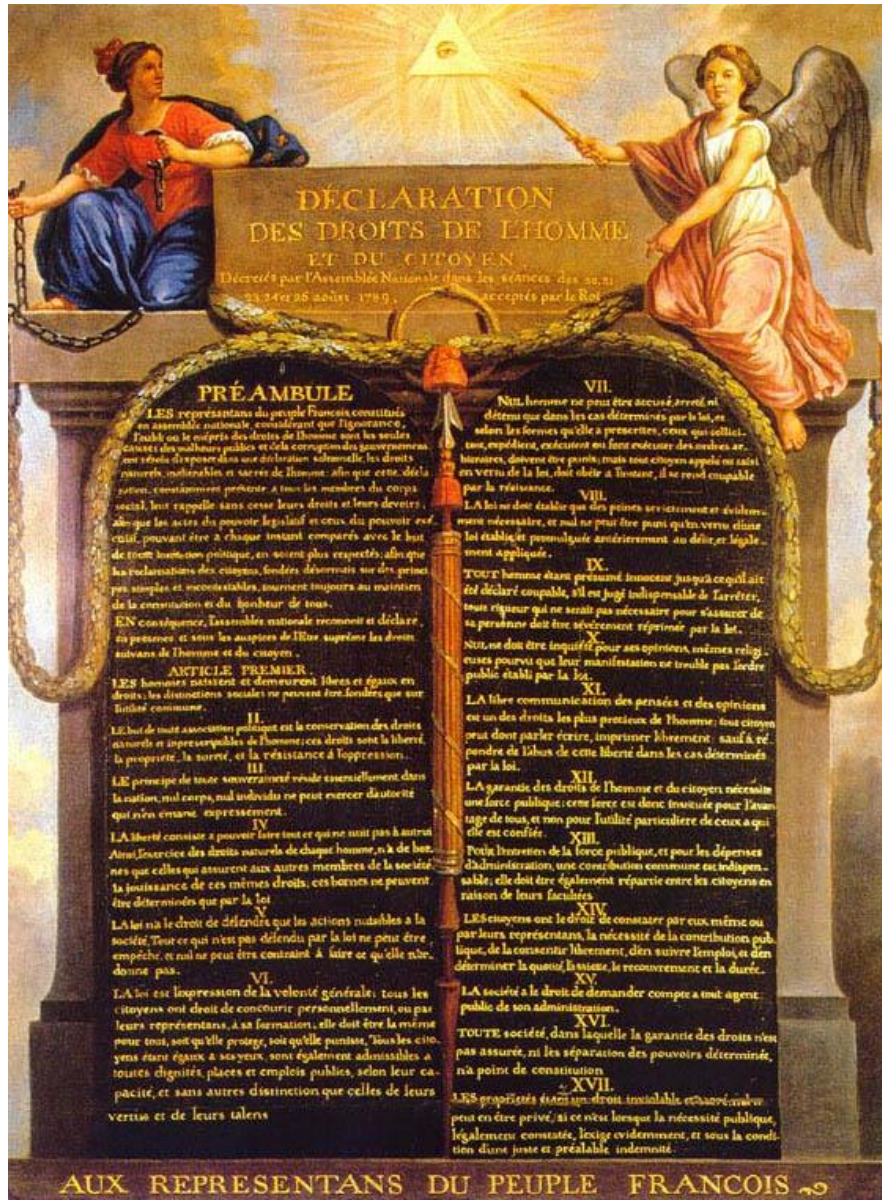 DÉCLARATION
DES DROITS DE L'HOMME
ET DU CITOYEN,
Décretés par l'Assemblée Nationale dans les séances des 20, 21
23, 24 et 26 aoûst 1789, acceptés par le Roi
PRÉAMBULE
LES représentans du peuple François, constitués
en assemblée nationale, considérant que l'ignorance,
l'oubli ou le mépris des droits de l'homme sont les seules
causes des malheurs publics et de la corruption des gouvernemens
ont résolu d'exposer dans une déclaration solemnelle, les droits
naturels, inaliénables et sacrés de l'homme; afin que cette décla
ration, constamment présente a tous les membres du corps
social, leur rappelle sans cesse leurs droits et leurs devoirs;
afin que les actes du pouvoir legislatif et ceux du pouvoir exé
cutif, pouvant être a chaque instant comparés avec le but
de toute institution politique, en soient plus respectés; afin que
les reclamations des citoyens, fondées désormais sur des principes
simples et incontestables, tournent toujours au maintien
de la constitution et du bonheur de tous.
EN conséquence, l'assemblée nationale reconnoit et déclare
en presence et sous les auspices de l'Etre suprême les droits
suivans de l'homme et du citoyen.
ARTICLE PREMIER.
LES hommes naissent et demeurent libres et égaux en
droits; les distinctions sociales ne peuvent être fondées que sur
l'utilité commune.
II.
LE but de toute association politique est la conservation des droits
naturels et imprescriptibles de l'homme; ces droits sont la liberté,
la propriete, la sureté, et la résistance à l'oppression.
III
LE principe de toute souveraineté réside essentiellement dans
la nation, nul corps, nul individu ne peut exercer d'autorité
qui n'en emane expressement.
IV
LA liberté consiste a pouvoir faire tout ce qui ne nuit pas à autrui
Ainsi, l'exercice des droits naturels de chaque homme, n'a de bor
nes que celles qui assurent aux autres membres de la société
la jouissance de ces mêmes droits; ces bornes ne peuvent
être déterminées que par la loi
V.
LA loi n'a le droit de défendre que les actions nuisibles a la
société. Tout ce qui n'est pas défendu par la loi ne peut être
empêché, et nul ne peut être contraint à faire ce qu'elle n'or-
donne pas.
VI.
LA loi est l'expression de la volonté générale; tous les
citoyens ont droit de concourir personnellement, ou par
leurs représentans, à sa formation; elle doit être la même
pour tous, soit qu'elle protege, soit qu'elle punisse, Tous les cito
yens étant égaux a ses yeux, sont également admissibles a
toutes dignités, places et emplois publics, selon leur ca-
pacité, et sans autres distinction que celles de leurs
vertus et de leurs talens
VII.
NUL homme ne peut être accusé, arreté, ni
détenu que dans les cas déterminés par la loi, et
selon les formes qu'elle a prescrites, ceux qui sollici-
tent, expédient, exécutent ou font exécuter des ordres ar-
bitraires, doivent être punis; mais tout citoyen appelé ou saisi
en vertu de la loi, doit obéir a l'instant, il se rend coupable
par la résistance.
VIII.
LA loi ne doit établir que des peines strictement et évidem-
ment nécessaire, et nul ne peut être puni qu'en vertu d'une
loi établie et promulguée antérierement au délit et légale
ment appliquée.
IX.
TOUT homme étant présumé innocent jusqu'à ce qu'il ait
été déclaré coupable, s'il est jugé indispensable de l'arrêter,
toute rigueur qui ne serait pas nécessaire pour s'assurer de
sa personne doit être sévèrement réprimée par la loi.
X.
NUL ne doit être inquiété pour ses opinions, mêmes religi-
euses pourvu que leur manifestation ne trouble pas l'ordre
public établi par la loi.
XI.
LA libre communication des pensées et des opinions
est un des droits les plus precieux de l'homme; tout citoyen
peut donc parler écrire, imprimer librement; sauf à ré
pondre de l'abus de cette liberté dans les cas déterminés
par la loi.
XII.
LA garantie des droits de l'homme et du citoyen nécessite
une force publique; cette force est donc instituée pour l'avan
tage de tous, et non pour l'utilité particuliere de ceux a qui
elle est confiée.
XIII.
Pour l'entretien de la force publique, et pour les dépenses
d'administration, une contribution commune est indispen-
sable; elle doit être également répartie entre les citoyens en
raison de leurs facultées
XIV.
LES citoyens ont le droit de constater par eux même ou
par leurs représentans, la nécessité de la contribution pub-
lique, de la consentir librement, d'en suivre l'emploi, et d'en
déterminer la quotité, l'assiete, le recouvrement et la durée.
XV.
LA société a le droit de demander compte a tout agent
public de son administration.
XVI.
TOUTE société, dans laquelle la garantie des droits n'est
pas assurée, ni les séparation des pouvoirs déterminée,
n'a point de constitution
XVII.
LES proprietés étant un droit inviolable et sacré, nul ne
peut en être privé, si ce n'est lorsque la nécessité publique,
légalement constatée, l'exige evidemment, et sous la condi-
tion d'une juste et préalable indemnité.
AUX REPRESENTANS DU PEUPLE FRANCOIS